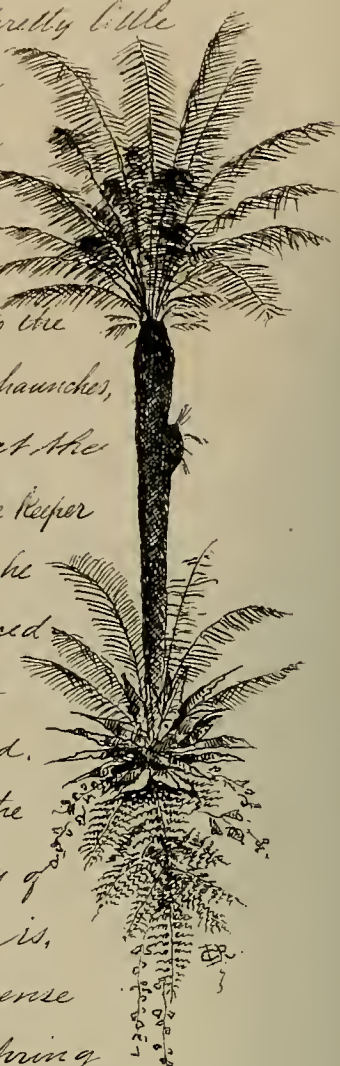 pretty little
the
haunches,
at the
Keeper
he
ced
d.
the
y of
is,
ense
hring